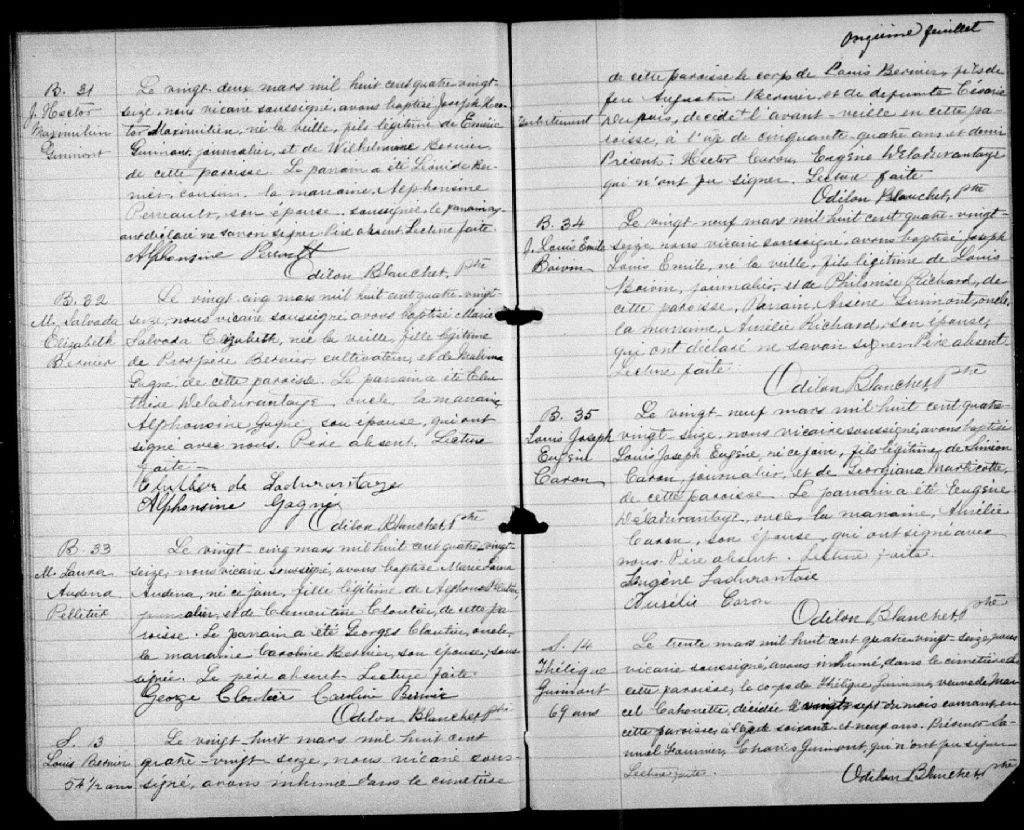 B. 31
J. Hector
Maximilien
Guimont
Le vingt-deux mars mil huit cent quatre-vingt-
seize, nous vicaire soussigné, avons baptisé Joseph Hec-
tor Maximilien, né la veille, fils légitime de
Guimont, journalier, et de Wilhelmine Bernier,
de cette paroisse. Le parrain a été Léonide Ber-
nier, cousin, la marraine, Alphonsine
Perrault, son épouse, soussignée, le parrain ay-
ant déclaré ne savoir signer. Père absent. Lecture faite.
Alphonsine Perrault
Odilon Blanchet, Ptre
B. 32
M. Salvada
Elizabeth
Bernier
Le vingt-cinq mars mil huit cent quatre-vingt-
seize, nous vicaire soussigné, avons baptisé Marie
Salvada Elizabeth, née la veille, fille légitime
de Prospère Bernier, cultivateur, et de Malvina
Gagné de cette paroisse. Le parrain a été Eleu-
thère Deladurantaye, oncle, la marraine,
Alphonsine Gagné, son épouse, qui ont
signé avec nous. Père absent. Lecture
faite.-
de Ladurantaye
Alphonsine Gagné
Odilon Blanchet, Ptre
B. 33
M. Laura
Audena
Pelletier
Le vingt-cinq mars mil huit cent quatre-vingt-
seize, nous vicaire soussigné, avons baptisé Marie Laura
Audena, né ce jour, fille légitime de Alphonse Pelletier,
journalier, et de Clementine Cloutier, de cette pa-
roisse. Le parrain a été Georges Cloutier, oncle,
la marraine Caroline Bernier, son épouse, sous-
signés. Le père absent. Lecture faite.
George Cloutier Caroline Bernier
Odilon Blanchet, Ptre
S. 13
Louis Bernier
54 1/2 ans
Le vingt-huit mars mil huit cent
quatre-vingt-seize, nous vicaire sous-
signé, avons inhumé dans le cimetière
Onzième feuillet
de cette paroisse le corps de Louis Bernier, fils de
feu Augustin Bernier, et de defunte Césarie
Dupuis, décédé l'avant-veille en cette pa-
roisse, à l'âge de cinquante-quatre ans et demi
Présent: Hector Caron, Eugène Deladurantaye
qui n'ont pu signer. Lecture faite
Odilon Blanchet, Ptre
B. 34
J. Louis Emile
Boivin
Le vingt-neuf mars mil huit cent quatre-vingt-
seize, nous vicaire soussigné, avons baptisé Joseph
Louis Emile, né la veille, fils légitime de Louis
Boivin, journalier, et de Philomise Richard, de
cette paroisse, Parrain, Arsene Guimont, oncle,
la marraine, Aurélie Richard, son épouse,
qui ont déclaré ne savoir signer. Père absent
Lecture faite.
Odilon Blanchet, Ptre
B. 35
Louis Joseph
Eugène
Caron
Le vingt-neuf mars mil huit cent quatre-
vingt-seize, nous vicaire soussigné, avons baptisé
Louis Joseph Eugène, né ce jour, fils légitime de Siméon
Caron, journalier, et de Georgiana Marticotte,
de cette paroisse. Le parrain a été Eugène
Deladurantaye, oncle, la marraine, Aurélie
Caron, son épouse, qui ont signé avec
nous. Père absent. Lecture faite.
Eugène Ladurantaie
Aurélie Caron
Odilon Blanchet, Ptre
S. 14
Thélique
Guimont
69 ans
Le trente mars mil huit cent quatre-vingt-seize, nous
vicaire soussigné, avons inhumé, dans le cimetière de
cette paroisse, le corps de Thélique Guimont, veuve de Mar-
cel Cahouette, décédée le vingt-sept du mois courant en
cette paroisse, à l'âge de soixante-et-neuf ans. Présents Sa-
muel Fournier, Charles Guimont, qui n'ont pu signer
Lecture faite.
Odilon Blanchet, Ptre